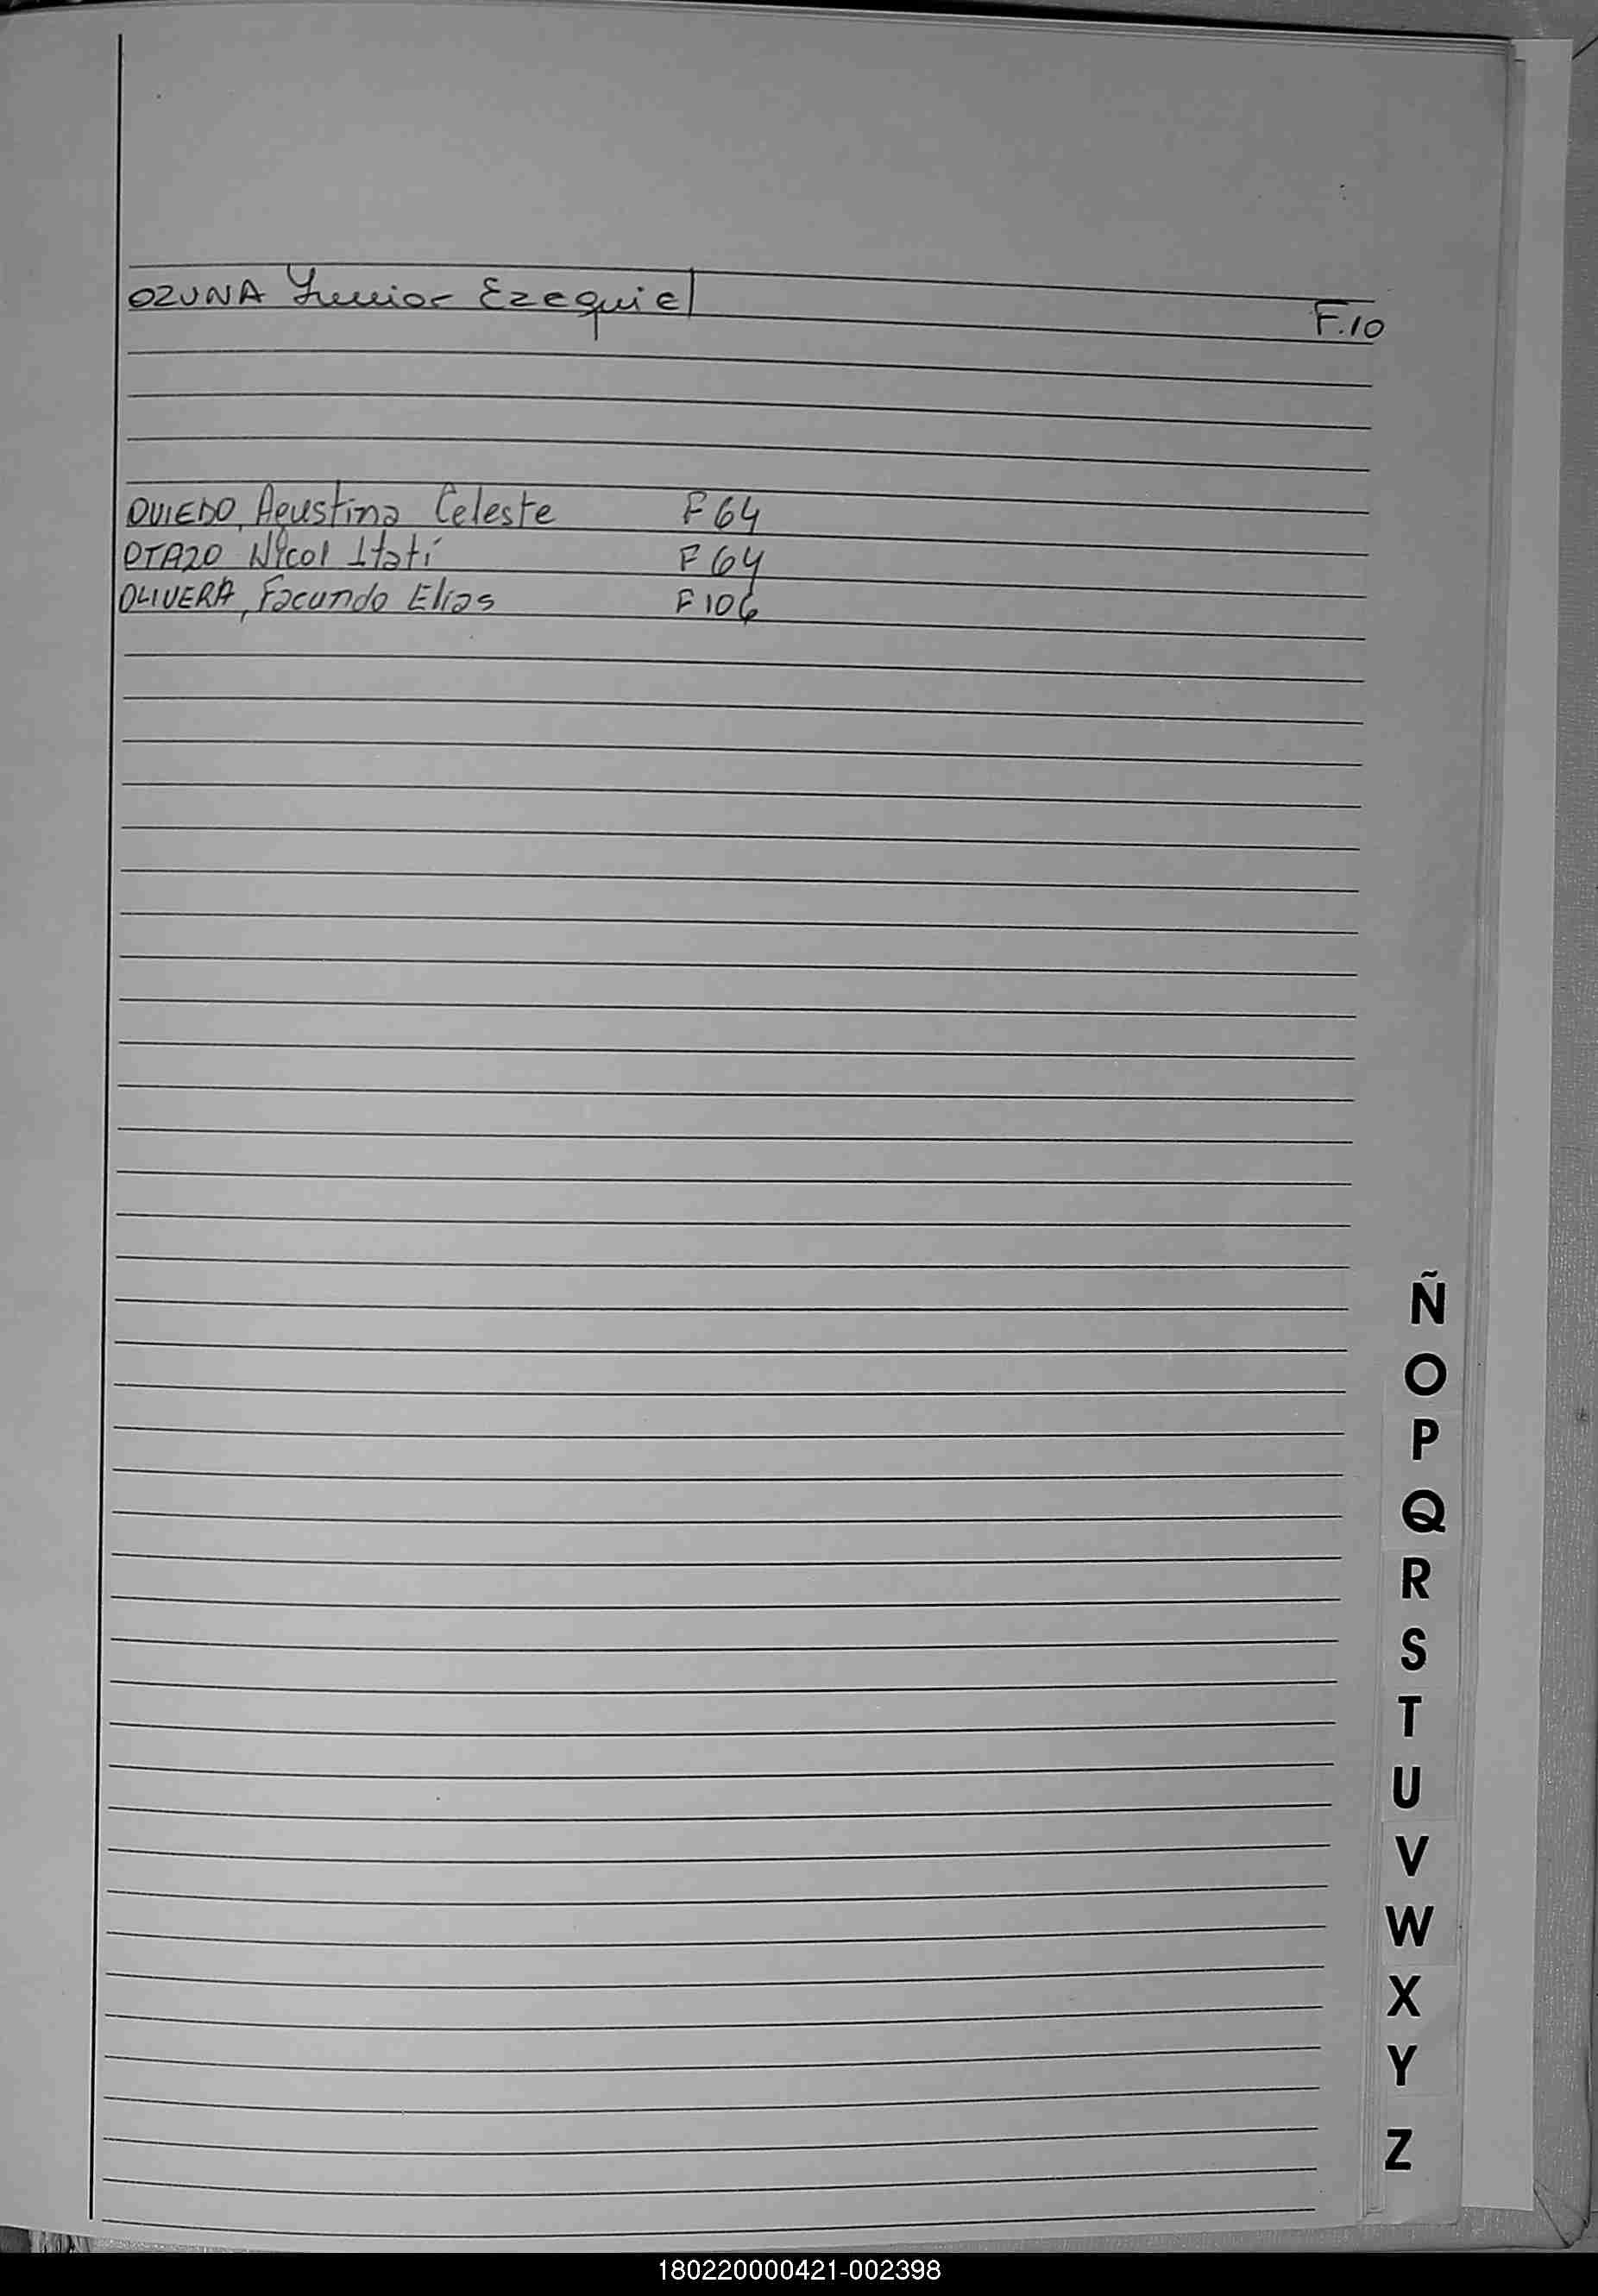 OZUNA Junior Ezequiel F.10
OVIEDO, Agustina Celeste F 64
OTAZO Nicol Itatí F 64
OLIVERA, Facundo Elias F 106
Ñ
O
P
Q
R
S
T
U
V
W
X
Y
Z
180220000421-002398